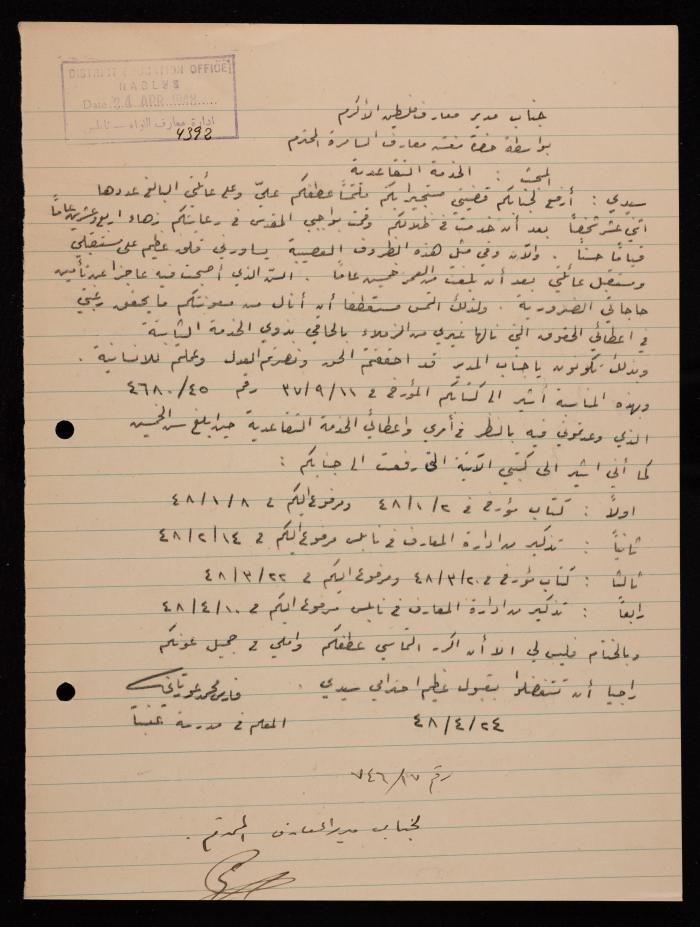 DISTRICT EDUCATION OFFICE
NABLUS
Date 24 APR 1948
ادارة معارف اللواء - نابلس
4392
جناب مدير معارف فلسطين الأكرم
بواسطة حضرة مفتش معارف السامرة المحترم
المبحث : الخدمة التقاعدية
سيدي : أرفع لجنابكم قضيتي مستجيرا بكم ملتمسا عطفكم عليّ وعلى عائلتي البالغ عددها
اثني عشر شخصاً بعد أن خدمت في ظلالكم وقمت بواجبي المقدس في رعايتكم زهاء اربع وعشرين عاماً
قياماً حسناً . والآن وفي مثل هذه الظروف العصيبة يساورني قلق عظيم على مستقبلي
ومستقبل عائلتي بعد أن بلغت من العمر خمسين عاماً . السن الذي أصبحت فيه عاجزا عن تأمين
حاجاتي الضرورية . ولذلك التمس مستعطفا أن أنال من معونتكم ما يحقق رغبتي
في اعطائي الحقوق التي نالها غيري من الزملاء بالحاقي بذوي الخدمة الثابتة
وبذلك تكونون يا جناب المدير قد احققتم الحق ونصرتم العدل وعملتم للانسانية .
وبهذه المناسبة أشير الى كتابكم المؤرخ في ٣٧/٩/١١ رقم ٤٦٨٠/٤٥
الذي وعدتموني فيه بالنظر في أمري واعطائي الخدمة التقاعدية حين ابلغ سن الخمسين
كما أني اشير الى كتبي الآتية التي رفعت الى جنابكم :
اولاً : كتاب مؤرخ في ٤٨/١/٢ ومرفوع اليكم في ٤٨/١/٨
ثانياً : تذكير من ادارة المعارف في نابلس مرفوع اليكم في ٤٨/٢/١٤
ثالثا : كتاب مؤرخ في ٤٨/٣/٢٠ ومرفوع اليكم في ٤٨/٣/٢٢
رابعاً : تذكير من ادارة المعارف في نابلس مرفوع اليكم في ٤٨/٤/١٠
وبالختام فليس لي الا أن اكرر التماسي عطفكم واملي في جميل عونكم
راجيا أن تتفضلوا بقبول عظيم احترامي سيدي .
فارس محمد
٤٨/٤/٢٤ المعلم في مدرسة عنبتا
رقم ٧٤٦/١٧
لجناب مدير المعارف المحترم .